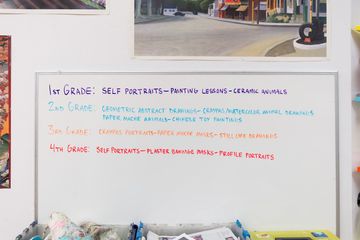 1ST GRADE: SELF PORTRAITS - PAINTING LESSONS - CERAMIC ANIMALS
2ND GRADE: GEOMETRIC ABSTRACT DRAWINGS - CRAYPAS/WATERCOLOR ANIMAL DRAWINGS
PAPER MACHE ANIMALS - CHINESE TOY PAINTINGS
3RD GRADE: CRAYPAS PORTRAITS - PAPER MACHE MASKS - STILL LIFE DRAWINGS
4TH GRADE: SELF PORTRAITS - PLASTER BANDAGE MASKS - PROFILE PORTRAITS